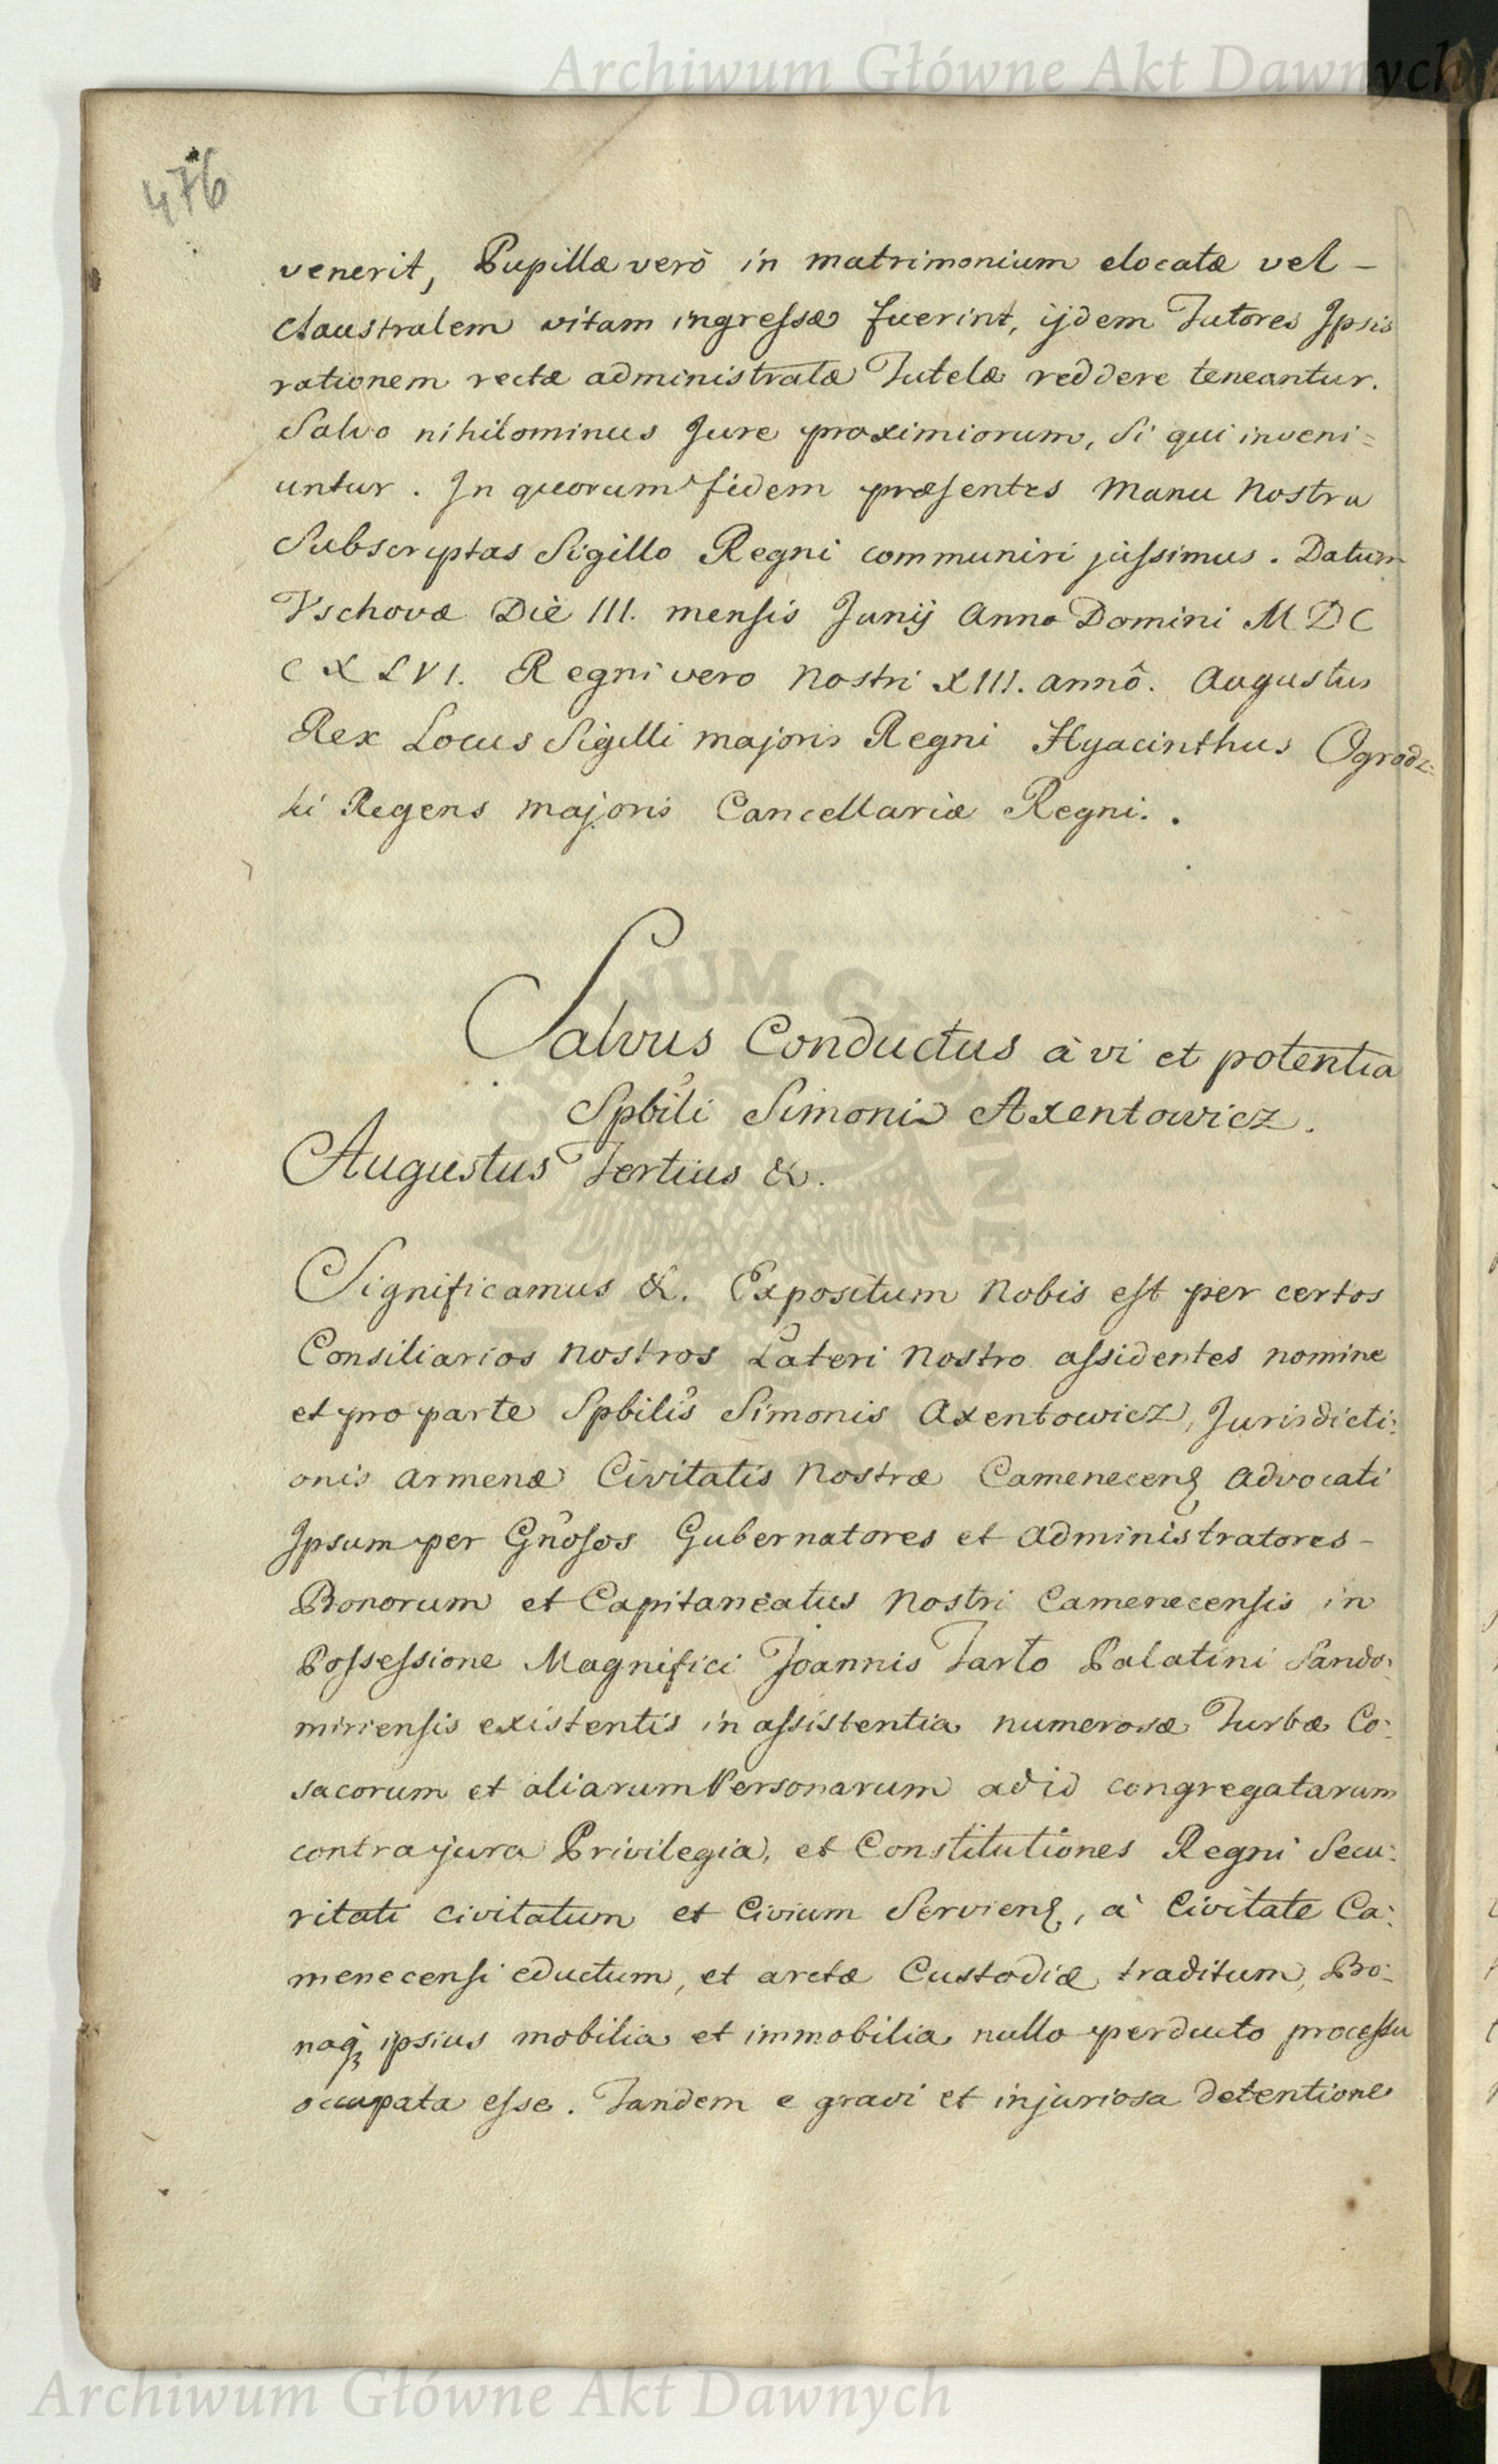 Archiwum Główne Akt Dawnych
476
venerit, Pupillæ verò in matrimonium elocatæ vel –
claustralem vitam ingreſsæ fuerint, ijdem Tutores Ipsis
rationem rectæ administratæ Tutelæ reddere teneantur.
Salvo nihilominus Jure proximiorum, Si qui inveni=
untur. In quorum fidem præſentes Manu Nostra
Subscriptas Sigillo Regni communiri juſsimus. Datum
Vschovæ Die III. menſis Junij Anno Domini MDC
CXLVI. Regni vero Nostri XIII. annô. Augustus
Rex Locus Sigilli majoris Regni Hyacinthus Ogrodz:
ki Regens majoris Cancellariæ Regni..
Salvus Conductus à vi et potentia
Spbili Simonis Axentowicz.
Augustus Tertius &.
Significamus &. Expositum Nobis eſt per certos
Consiliarios Nostros Lateri Nostro aſsidentes nomine
et pro parte Spbilis Simonis Axentowicz, Jurisdicti:
onis Armenæ Civitatis Nostræ Camenecenʒ Advocati
Ipsum per Gnoſos Gubernatores et Administratores –
Bonorum et Capitaneatus Nostri Camenecenſis in
Poſseſsione Magnifici Joannis Tarło Palatini Sando:
mirienſis existentis in aſsistentia numerosæ Turbæ Co:
sacorum et aliarum Personarum ad id congregatarum
contra jura Privilegia, et Constitutiones Regni Secu:
ritati civitatum et Civium Servienʒ, à Civitate Ca:
menecenſi eductum, et arctæ Custodiæ traditum, Bo:
naqʒ ipsius mobilia et immobilia nullo perducto proceſsu
occupata eſse. Tandem e gravi et injuriosa detentione
Archiwum Główne Akt Dawnych